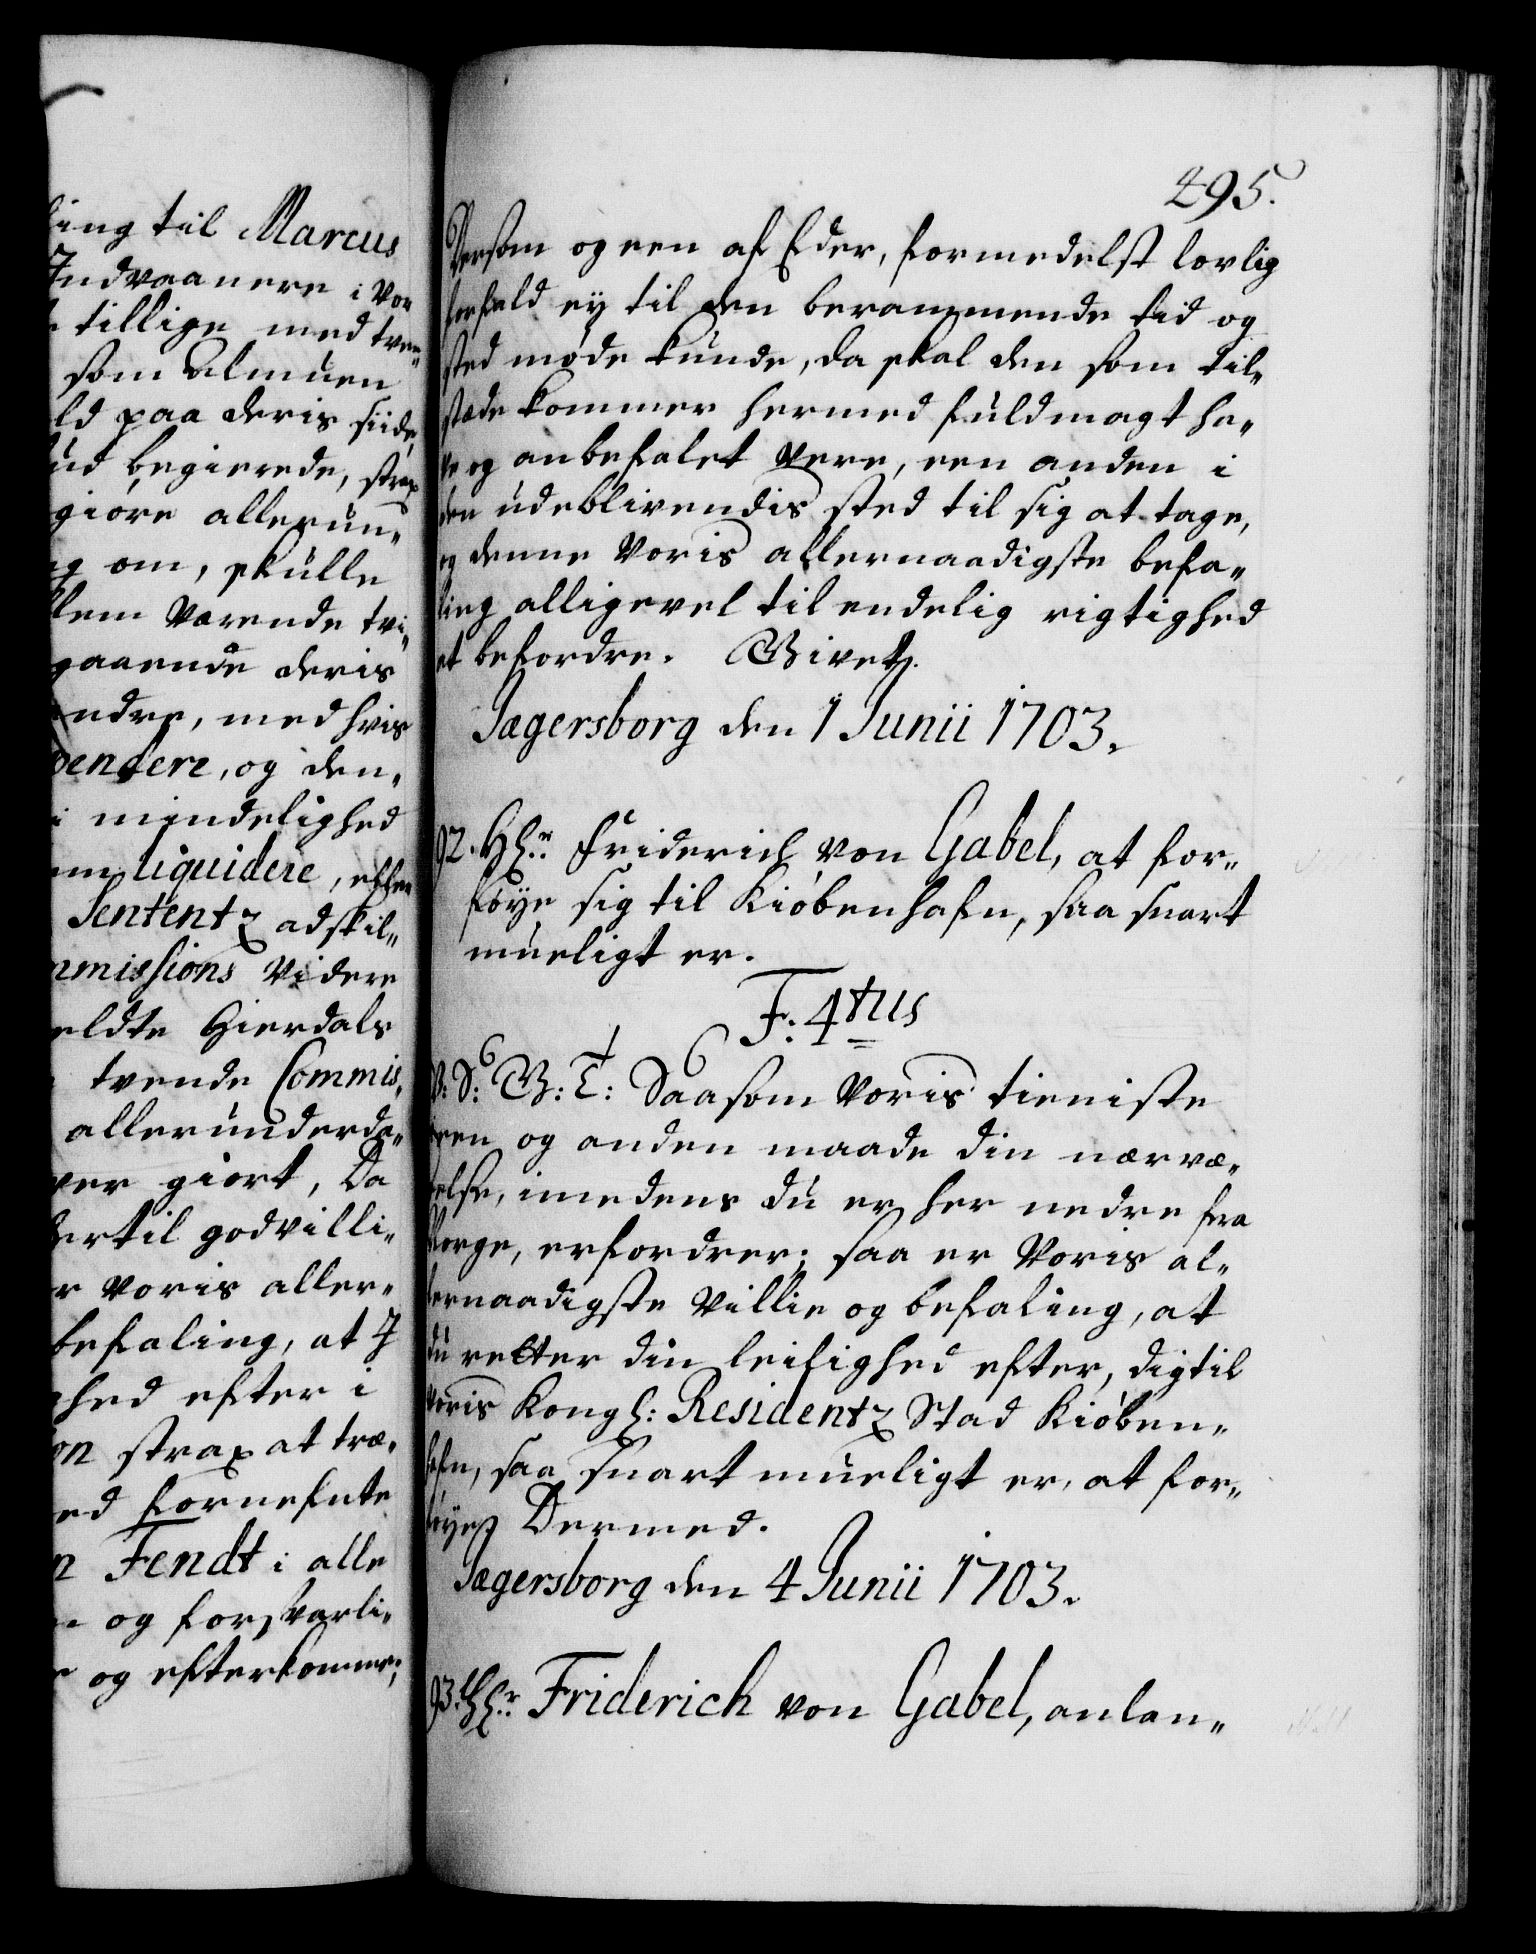 ling til Marcus
Indvaanere i vor
tillige med tven„
som Almuen
ld paa deris siide
ud begierede, strax
giøre allerun„
om, skulle
llem værende tvi„
gaaende deris
andre, med hvis
pendere, og den„
i mindelighed
liquidere, eller
Sententz adskil„
mmissions videre
meldte Hierdals
tvende Commis„
allerunderda„
ver giort, Da
hertil godvilli„
r voris aller„
befaling, at I
ghed efter i
on strax at træ„
ed fornefnte
n Fendt i alle
og forsvarli„
og efterkomme;
495.
Dersom og een af Eder, formedelst lovlig
forfald ey til den berammende tid og
sted møde kunde, da skal den som til„
stæde kommer hermed fuldmagt ha„
ve og anbefalet vere, een anden i
den udeblivendis sted til sig at tage,
og denne Voris allernaadigste befa„
ling alligevel til endelig rigtighed
at befordre. Givetz.
Jægersborg den 1 Junii 1703.
92. Hr. Friderich von Gabel, at for„
føye sig til Kiøbenhafn, saa snart
mueligt er.
F: 4tus
V: S: G: T: Saasom Voris tieniste
i een og anden maade din nærvæ„
relse, imedens du er her nedre fra
Norge, erfordrer; saa er Voris al„
lernaadigste Villie og befaling, at
du retter din leilighed efter, dig til
Voris Kongl: Residentz Stad Kiøben„
hafn, saa snart mueligt er, at for„
føye, Dermed.
Jægersborg den 4 Junii 1703.
93. Hr. Friderich von Gabel, anlan„